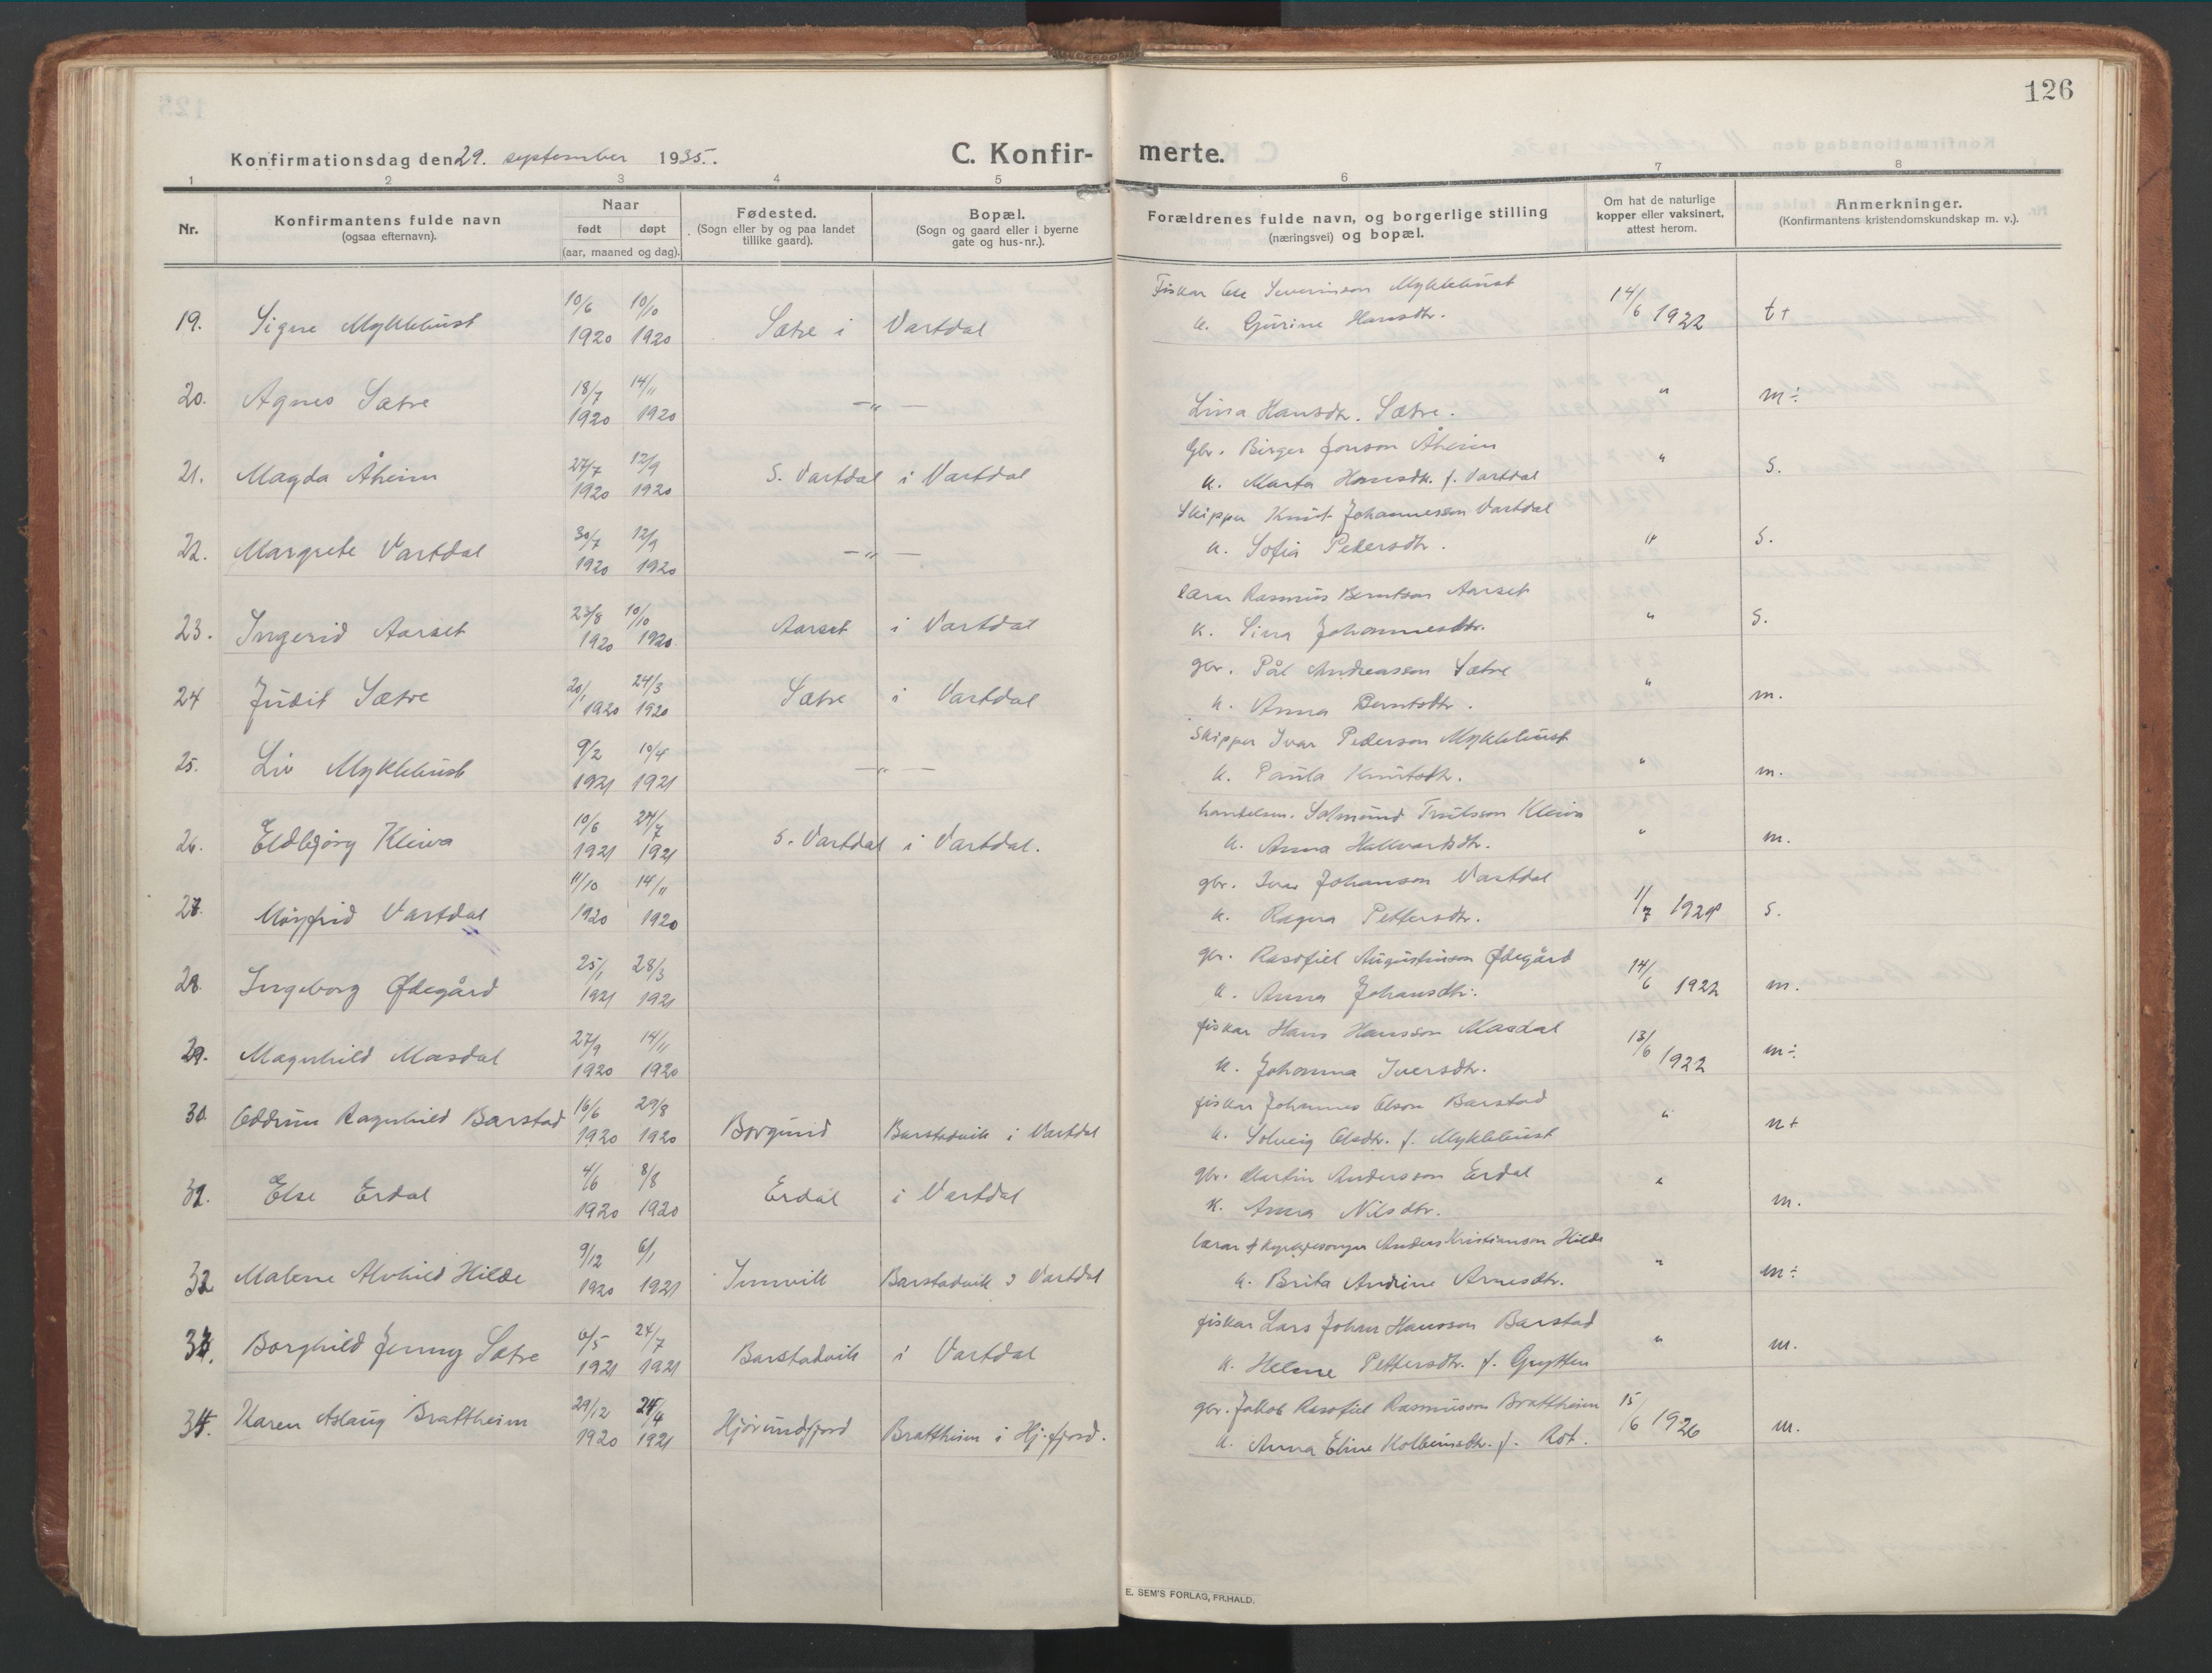 126
Konfirmationsdag den 29. september 1935.
C. Konfir- merte.
1 2 3 4 5 6 7 8
Nr.
Konfirmantens fulde navn
(ogsaa efternavn).
Naar
født døpt
(aar, maaned og dag).
Fødested.
(Sogn eller by og paa landet
tillike gaard).
Bopæl.
(Sogn og gaard eller i byerne
gate og hus-nr.).
Forældrenes fulde navn, og borgerlige stilling
(næringsvei) og bopæl.
Om hat de naturlige
kopper eller vaksinert,
attest herom.
Anmerkninger.
(Konfirmantens kristendomskundskap m. v.).
19. Signe Myklebust 10/6 1920 10/10 1920 Sætre i Vartdal
Fiskar Ole Severinson Myklebust
k. Gurine Hansdtr. 14/6 1922 t+
20. Agnes Sætre 18/7 1920 14/11 1920 — " —
Lina Hansdtr. Sætre. " m÷
21. Magda Åheim 27/7 1920 12/9 1920 S. Vartdal i Vartdal
Gbr. Birger Jonson Åheim
k. Marta Hansdtr. f. Vartdal " s.
22. Margrete Vartdal 30/7 1920 12/9 1920 — " —
Skipper Knut Johannesson Vartdal
k. Sofia Pedersdtr. " s.
23. Ingerid Aarset 23/8 1920 10/10 1920 Aarset i Vartdal
lærar Rasmus Berntson Aarset
k. Sina Johannesdtr. " s.
24 Judit Sætre 20/1 1920 24/3 1920 Sætre i Vartdal
gbr. Pål Andreasson Sætre
k. Anna Berntsdtr. " m.
25. Liv Myklebust 9/2 1921 10/4 1921 — " —
Skipper Ivar Pederson Myklebust
k. Paula Knutsdtr. " m.
26. Eldbjørg Kleiva 10/6 1921 24/7 1921 S. Vartdal i Vartdal.
handelsm. Salmund Trulsson Kleiva
k. Anna Hallvartsdtr. " m.
27. Møyfrid Vartdal 11/10 1920 14/11 1920
gbr. Ivar Johanson Vartdal
k. Ragna Pettersdtr. 1/7 s.
28. Ingeborg Ødegård 25/1 1921 28/3 1921
gbr. Rasofiel Augustinson Ødegård
k. Anna Johansdtr. 14/6 1922 m.
29. Magnhild Masdal 27/9 1920 14/11 1920
fiskar Hans Hansson Masdal
k. Johanna Iversdtr. 13/6 1922 m÷
30. Oddrun Ragnhild Barstad 16/6 1920 29/8 1920 Borgund Barstadvik i Vartdal
fiskar Johannes Olson Barstad
k. Solveig Olsdtr. f. Myklebust " n+
31. Else Erdal 4/6 1920 8/8 1920 Erdal i Vartdal
gbr. Martin Andersson Erdal
k. Anna Nilsdtr. " m.
32 Malene Alvhild Hilde 9/12 1920 6/1 1921 Innvik Barstadvik i Vartdal
lærar & kyrkjesongar Anders Kristianson Hilde
k. Brita Andrine Arnesdtr. " m÷
33. Borghild Jenny Sætre 6/5 1921 24/7 1921 Barstadvik i Vartdal
fiskar Lars Johan Hansson Barstad
k. Helene Pettersdtr. f. Grytten " m.
34. Karen Aslaug Brattheim 29/12 1920 24/4 1921 Hjørundfjord Brattheim i Hj.fjord.
gbr. Jakob Rasofiel Rasmusson Brattheim
k. Anna Eline Kolbeinsdtr. f. Rot. 15/6 1926 m.
E. SEM'S FORLAG, FR.HALD.